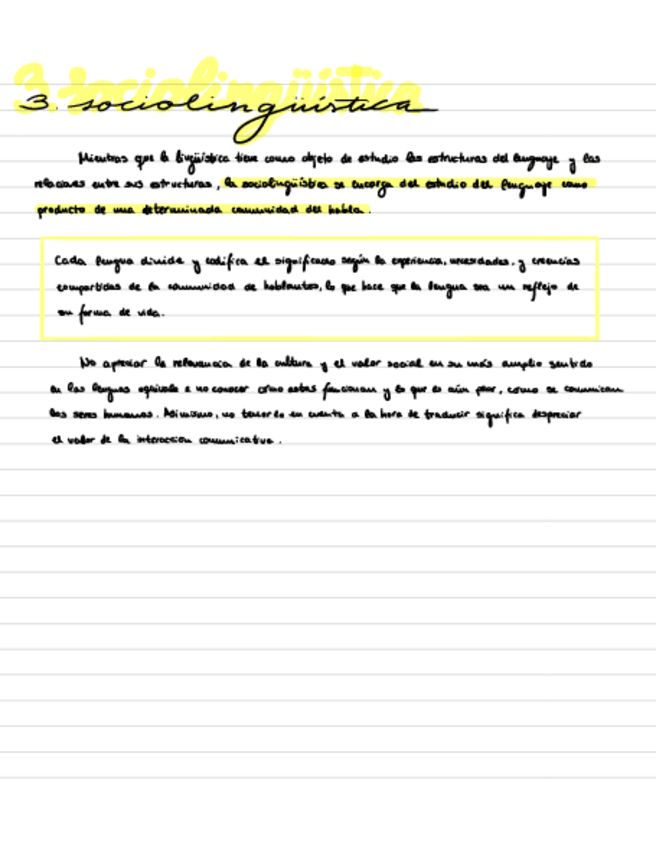 3. sociolingüística
Mientras que la lingüística tiene como objeto de estudio las estructuras del lenguaje y las
relaciones entre sus estructuras, la sociolingüística se encarga del estudio del lenguaje como
producto de una determinada comunidad del habla.
Cada lengua divide y codifica el significado según la experiencia, necesidades, y creencias
compartidas de la comunidad de hablantes, lo que hace que la lengua sea un reflejo de
su forma de vida.
No apreciar la relevancia de la cultura y el valor social en su más amplio sentido
en las lenguas equivale a no conocer cómo estas funcionan y lo que es aún peor, como se comunican
los seres humanos. Asimismo, no tenerlo en cuenta a la hora de traducir significa despreciar
el valor de la interacción comunicativa.